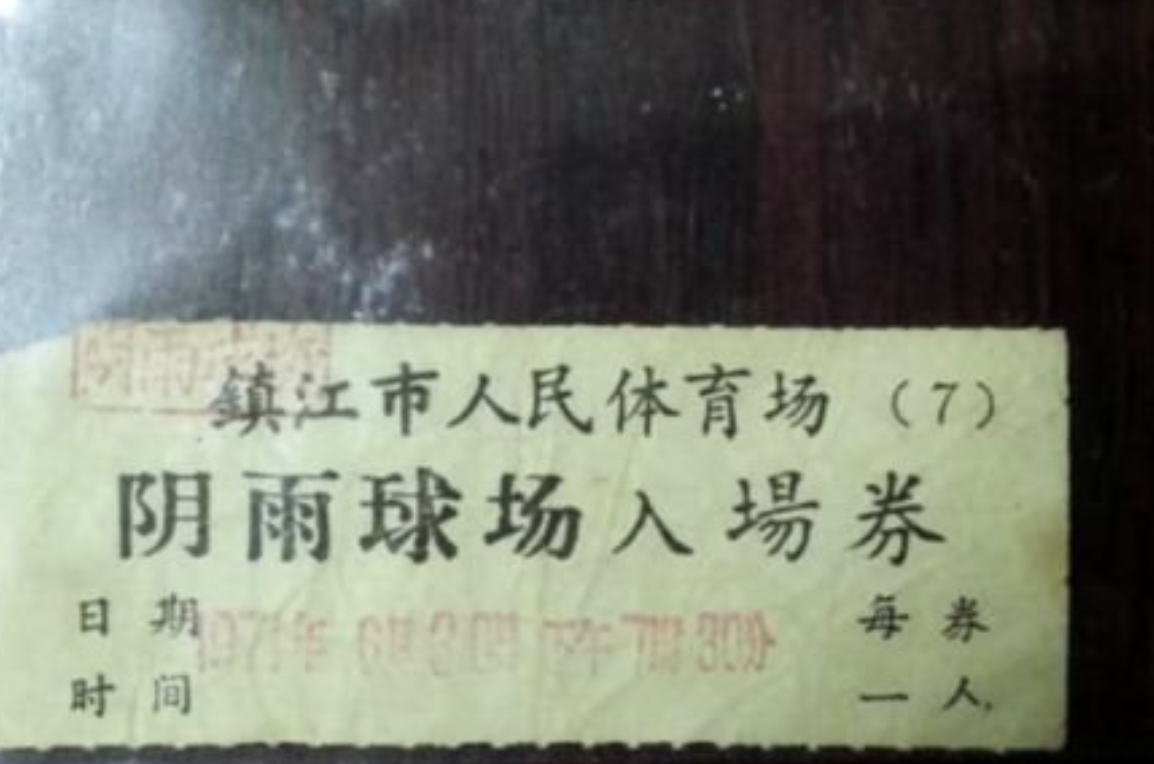 阴雨
鎮江市人民体育场（7）
阴雨球场入場券
日期
1971年 6月 下午 7时 30分
每券
时间
一人